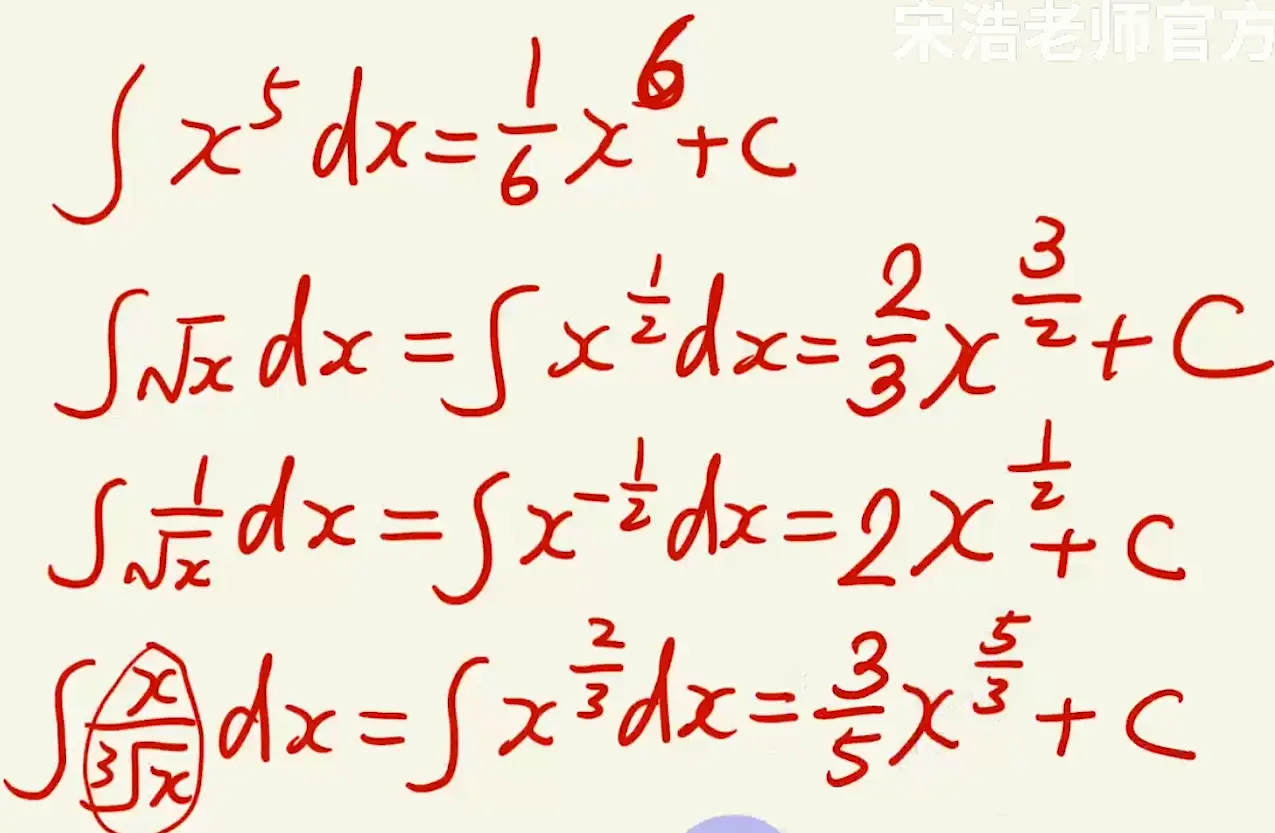 宋浩老师官方
∫ x⁵ dx = 1/6 x⁶ + C
∫ √x dx = ∫ x^(1/2) dx = 2/3 x^(3/2) + C
∫ 1/√x dx = ∫ x^(-1/2) dx = 2x^(1/2) + C
∫ x/∛x dx = ∫ x^(2/3) dx = 3/5 x^(5/3) + C